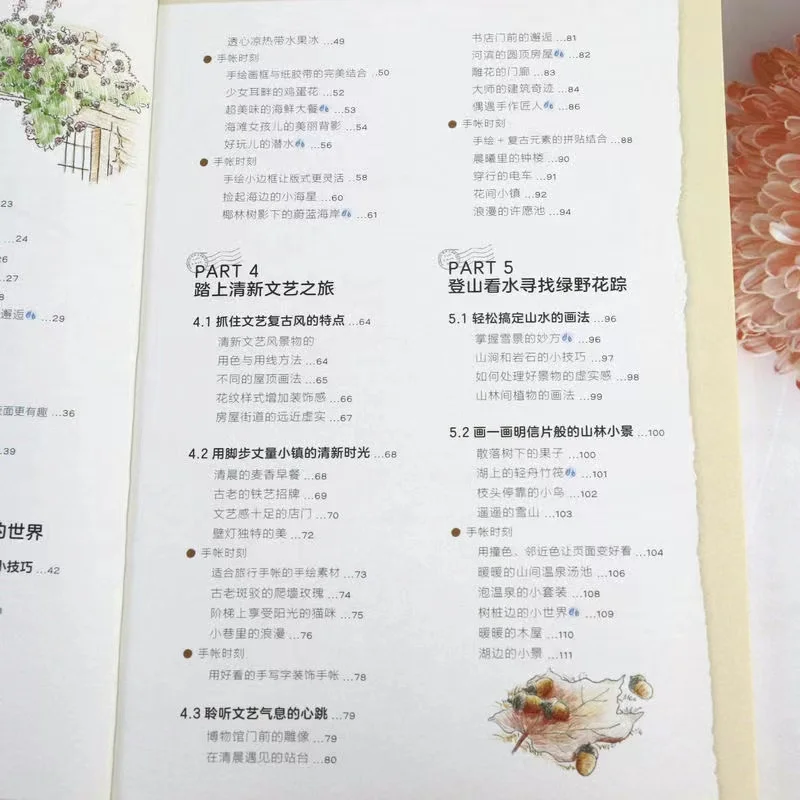 23
...24
...27
邂逅 ...29
面更有趣 ...36
...39
的世界
小技巧 ...42
透心凉热带水果冰 ...49
手帐时刻
手绘画框与纸胶带的完美结合 ...50
少女耳畔的鸡蛋花 ...52
超美味的海鲜大餐 ...53
海滩女孩儿的美丽背影 ...54
好玩儿的潜水 ...56
手帐时刻
手绘小边框让版式更灵活 ...58
捡起海边的小海星 ...60
椰林树影下的蔚蓝海岸 ...61
PART 4
踏上清新文艺之旅
4.1 抓住文艺复古风的特点 ...64
清新文艺风景物的
用色与用线方法 ...64
不同的屋顶画法 ...65
花纹样式增加装饰感 ...66
房屋街道的远近虚实 ...67
4.2 用脚步丈量小镇的清新时光 ...68
清晨的麦香早餐 ...68
古老的铁艺招牌 ...69
文艺感十足的店门 ...70
壁灯独特的美 ...72
手帐时刻
适合旅行手帐的手绘素材 ...73
古老斑驳的爬墙玫瑰 ...74
阶梯上享受阳光的猫咪 ...75
小巷里的浪漫 ...76
手帐时刻
用好看的手写字装饰手帐 ...78
4.3 聆听文艺气息的心跳 ...79
博物馆门前的雕像 ...79
在清晨遇见的站台 ...80
书店门前的邂逅 ...81
河滨的圆顶房屋 ...82
雕花的门廊 ...83
大师的建筑奇迹 ...84
偶遇手作匠人 ...86
手帐时刻
手绘+复古元素的拼贴结合 ...88
晨曦里的钟楼 ...90
穿行的电车 ...91
花间小镇 ...92
浪漫的许愿池 ...94
PART 5
登山看水寻找绿野花踪
5.1 轻松搞定山水的画法 ...96
掌握雪景的妙方 ...96
山涧和岩石的小技巧 ...97
如何处理好景物的虚实感 ...98
山林间植物的画法 ...99
5.2 画一画明信片般的山林小景 ...100
散落树下的果子 ...100
湖上的轻舟竹筏 ...101
枝头停靠的小鸟 ...102
遥遥的雪山 ...103
手帐时刻
用撞色、邻近色让页面变好看 ...104
暖暖的山间温泉汤池 ...106
泡温泉的小套装 ...108
树桩边的小世界 ...109
暖暖的木屋 ...110
湖边的小景 ...111